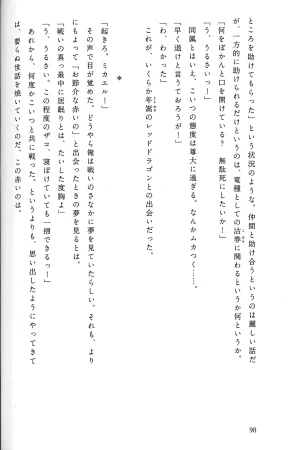 ところを助けてもらった」という状況のような。仲間と助け合うというのは麗しい話だ
が、一方的に助けられるだけというのは、竜種としての沽券に関わるというか何というか。
「何をぽかんと口を開けている？　無駄死にしたいか！」
「う、うるさいっ！」
同属とはいえ、こいつの態度は尊大に過ぎる。なんかムカつく……。
「早く退けと言うておろうが！」
「わ、わかった」
これが、いくらか年嵩のレッドドラゴンとの出会いだった。
＊
「起きろ、ミカエル！」
その声で目が覚めた。どうやら俺は戦いのさなかに夢を見ていたらしい。それも、より
にもよって『お節介な赤いの』と出会ったときの夢を見るとは。
「戦いの真っ最中に居眠りとは、たいした度胸よ」
「う、うるさい。この程度のザコ、寝ぼけていても一掃できるっ！」
あれから、何度かこいつと共に戦った。というよりも、思い出したようにやってきて
は、要らぬ世話を焼いていくのだ、この赤いのは。
98